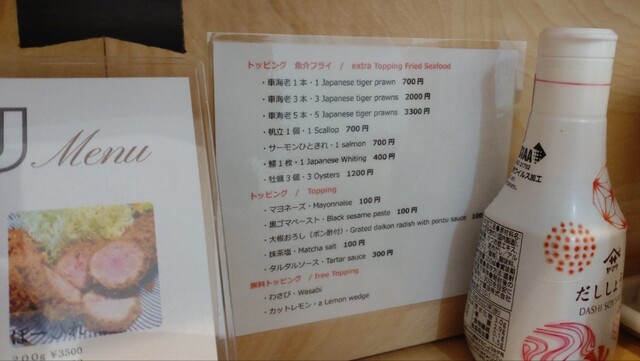 トッピング 魚介フライ / extra Topping Fried Seafood
・車海老1本・1 Japanese tiger prawn 700円
・車海老3本・3 Japanese tiger prawns 2000円
・車海老5本・5 Japanese tiger prawns 3300円
・帆立1個・1 Scallop 700円
・サーモンひときれ・1 salmon 700円
・鱚1枚・1 Japanese Whiting 400円
・牡蠣3個・3 Oysters 1200円
トッピング / Topping
・マヨネーズ・Mayonnaise 100円
・黒ゴマペースト・Black sesame paste 100円
・大根おろし(ポン酢付)・Grated daikon radish with ponzu sauce
・抹茶塩・Matcha salt 100円
・タルタルソース・Tartar sauce 300円
無料トッピング / free Topping
・わさび・Wasabi
・カットレモン・a Lemon wedge
Menu
200g ¥3500
ヤマサ
DASHI SOY